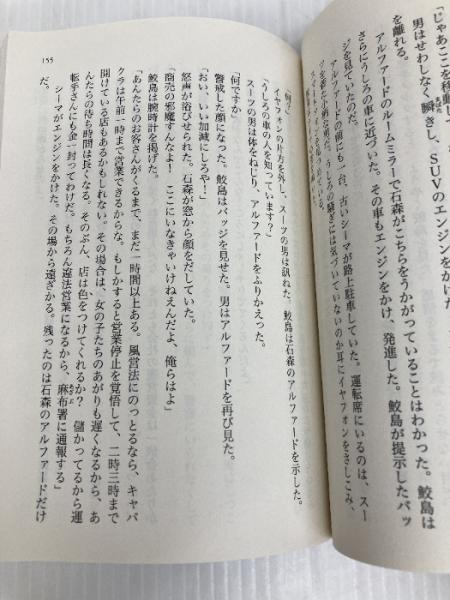 「じゃあここを移動し
男はせわしなく瞬きし、SUVのエンジンをかけ
を離れる。
アルファードのルームミラーで石森がこちらをうかがっていることはわかった。鮫島は
さらにうしろの車に近づいた。その車もエンジンをかけ、発進した。鮫島が提示したバッ
ジを見ていたのだ。
アルファードの前にも一台、古いシーマが路上駐車していた。運転席にいるのは、スー
ツを着た小柄な男だ。うしろの騒ぎには気づいていないのか耳にイヤフォンをさしこみ、
「何か」
イヤフォンの片方を外し、スーツの男は訊ねた。鮫島は石森のアルファードを示した。
「うしろの車の人を知っています?」
スーツの男は体をねじり、アルファードをふりかえった。
「何ですか」
警戒した顔になった。鮫島はバッジを見せた。男はアルファードを再び見た。
「おい、いい加減にしろや!」
怒声が浴びせられた。石森が窓から顔をだしていた。
「商売の邪魔すんなよ! ここにいなきゃいけねえんだよ、俺らはよ」
鮫島は腕時計を掲げた。
「あんたらのお客さんがくるまで、まだ一時間以上ある。風営法にのっとるなら、キャバ
クラは午前一時まで営業できるからな。もしかすると営業停止を覚悟して、二時三時まで
開けている店もあるかもしれない。その場合は、女の子たちのあがりも遅くなるから、あ
んたらの待ち時間は長くなる。そのぶん、店は色をつけてくれるか? 儲かってるから運
転手さんにも金一封ってわけだ。もちろん違法営業になるから、麻布署に通報する」
シーマがエンジンをかけた。その場から遠ざかる。残ったのは石森のアルファードだけ
だ。
155